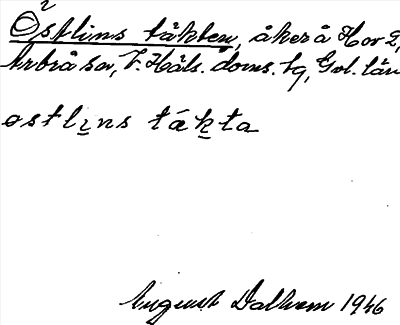 Östlins täkten, åker å Hov 2,
Arbrå sn, V. Häls. doms. tg, Gvl. län
ostli̱ns tákt̠a
August Dalhem 1946